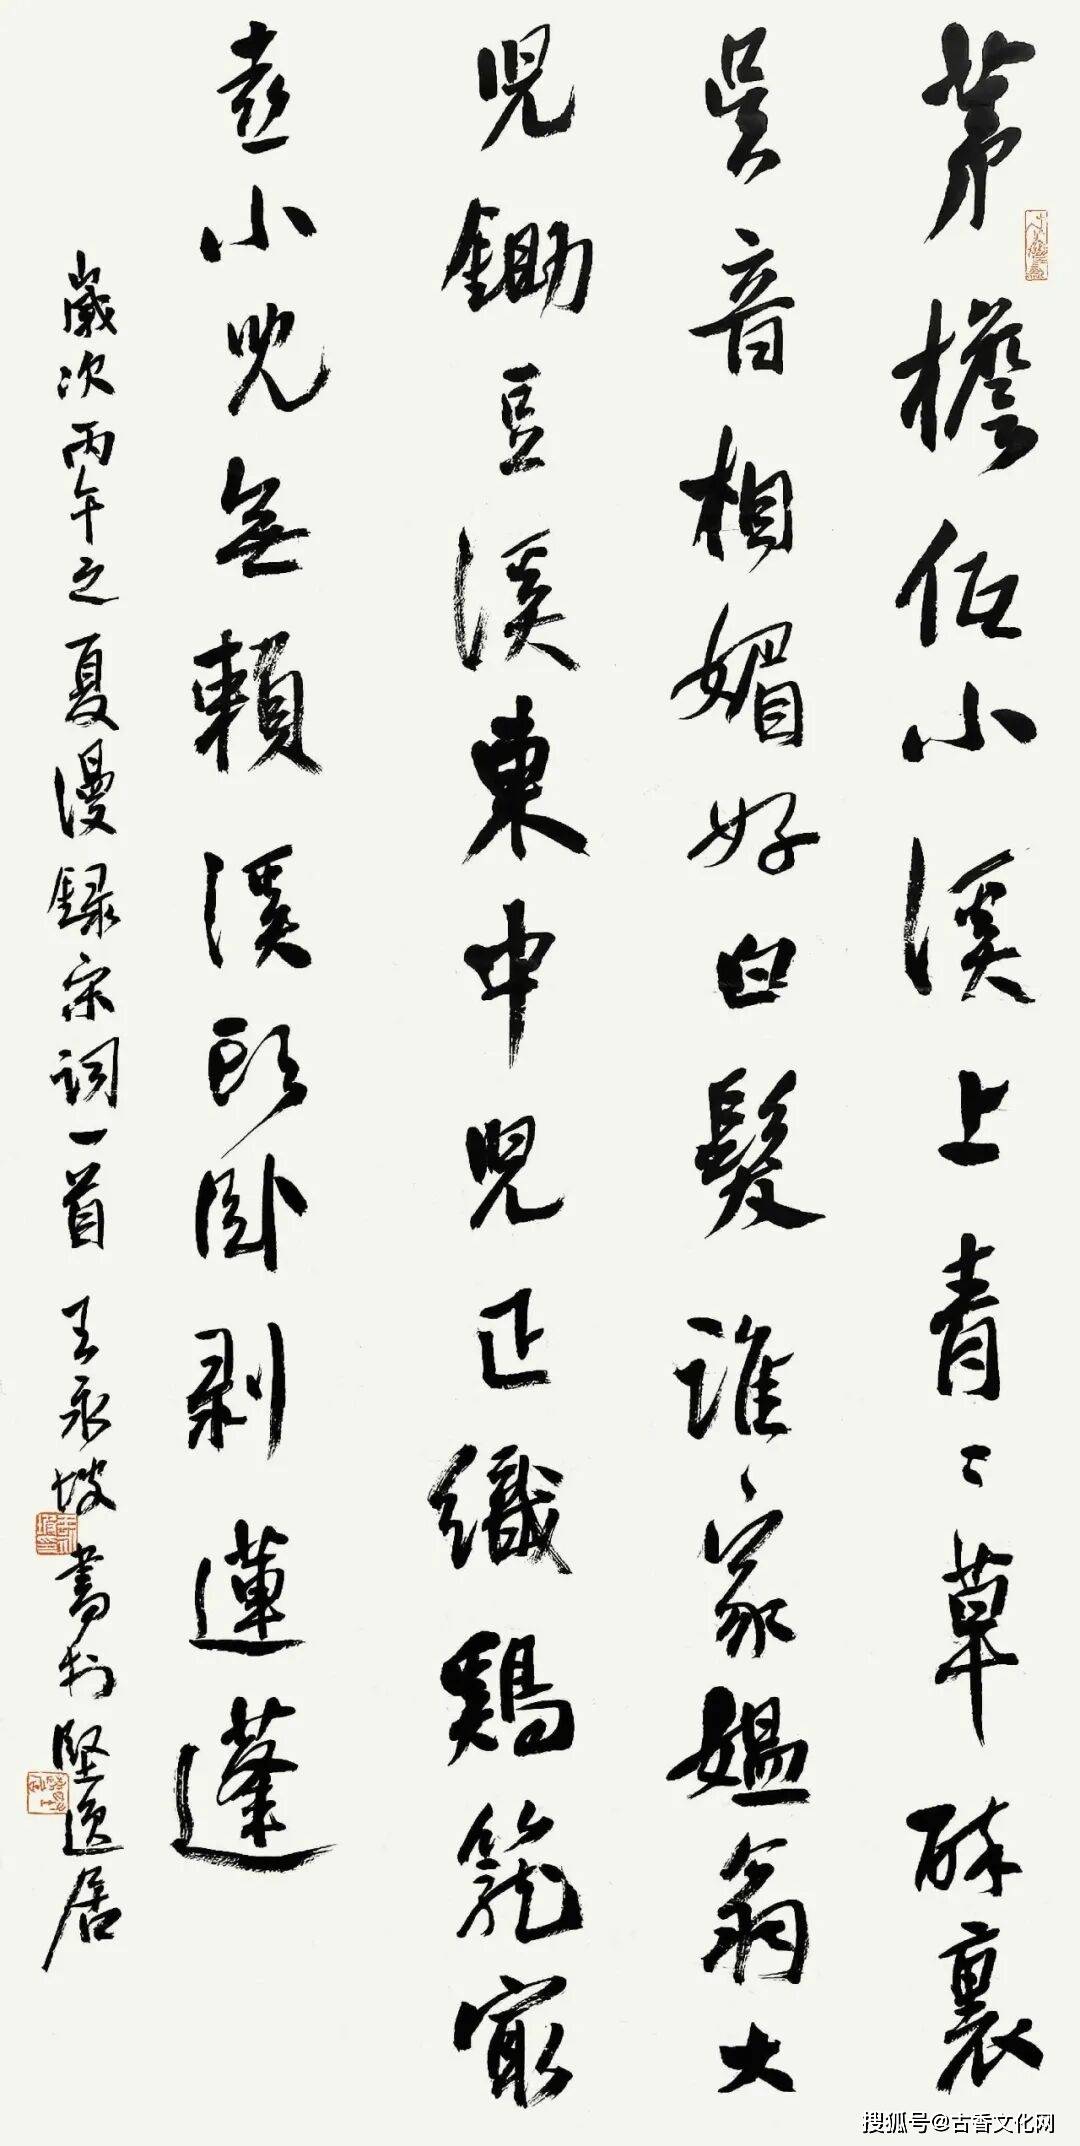 茅檐低小溪上青〻草醉裏
吳音相媚好白髮誰家媼翁大
兒鋤豆溪東中兒正織鷄籠最
喜小兒無賴溪頭卧剥蓮蓬
歲次丙午之夏漫録宋詞一首 王永坡書於堅逸居
搜狐号@古香文化网